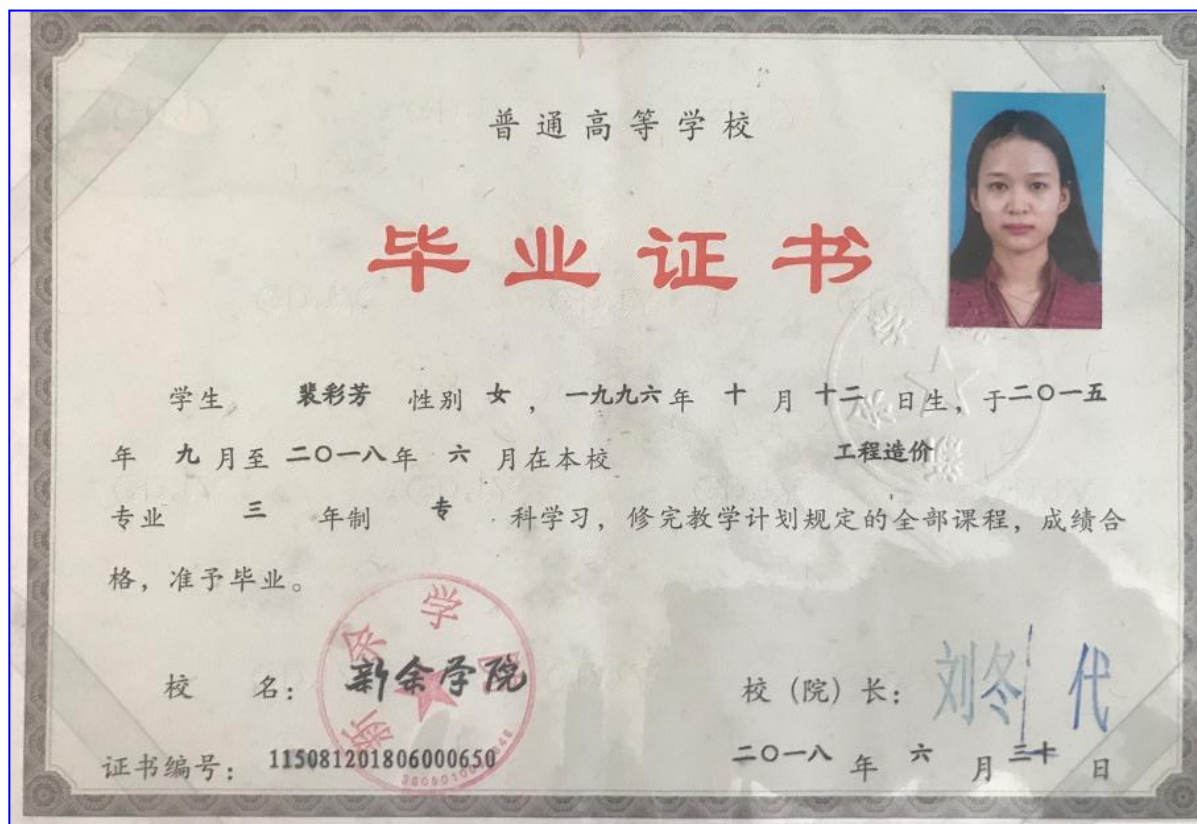 普通高等学校
毕业证书
学生 裴彩芳 性别 女，一九九六年 十 月 十二 日生，于二〇一五
年 九 月至 二〇一八年 六 月在本校 工程造价
专业 三 年制 专 科学习，修完教学计划规定的全部课程，成绩合
格，准予毕业。
新余学院
校 名： 新余学院 校（院）长： 刘冬代
证书编号： 115081201806000650 二〇一八 年 六 月 三十 日